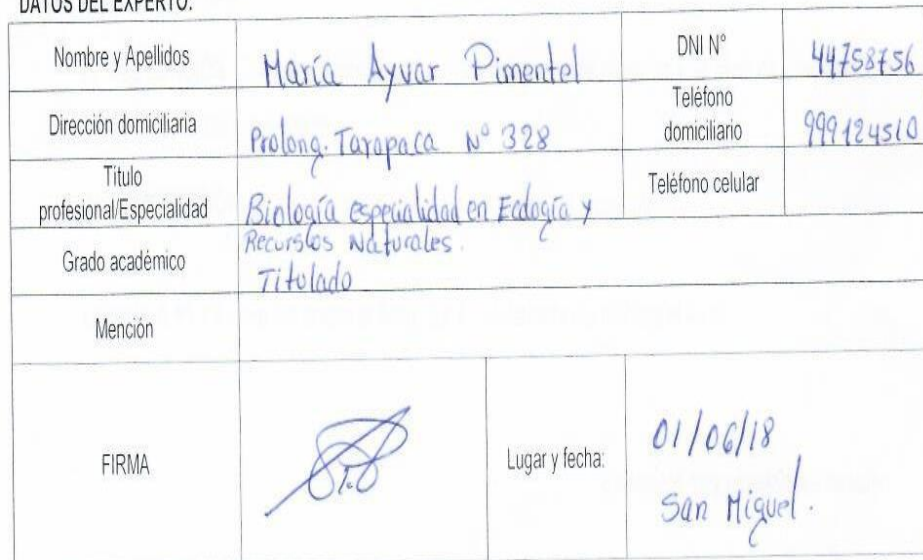 DATOS DEL EXPERTO:
Nombre y Apellidos
María Ayvar Pimentel
DNI N°
44758756
Dirección domiciliaria
Prolong. Tarapaca N° 328
Teléfono
domiciliario
999124510
Titulo
profesional/Especialidad
Biología especialidad en Ecología y
Recursos Naturales.
Teléfono celular
Grado académico
Titulado
Mención
FIRMA
Lugar y fecha:
01/06/18
San Miguel.